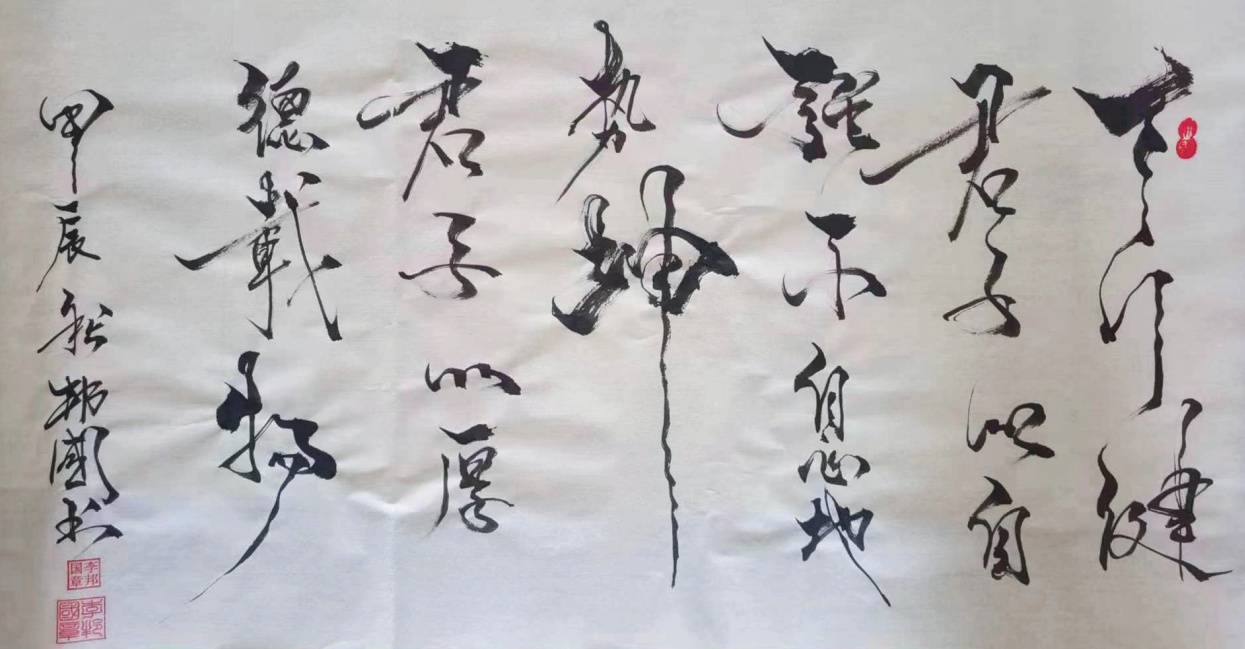 天行健
君子以自
强不息地
势坤
君子以厚
德載物
甲辰秋邦國书
李邦国章
李邦國章